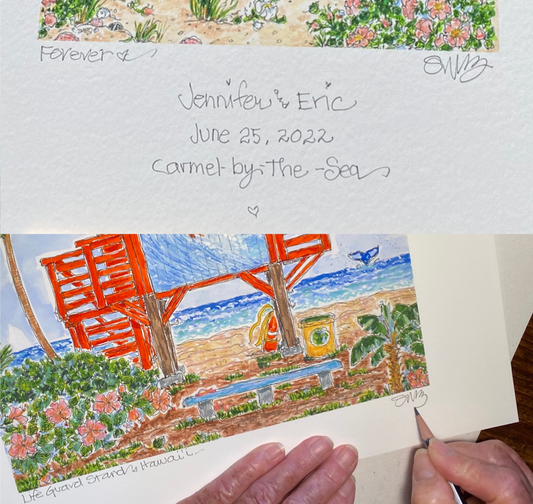 Forever
Jennifer & Eric
June 25, 2022
Carmel-by-The-Sea
Life Guard Stand Hawai'i